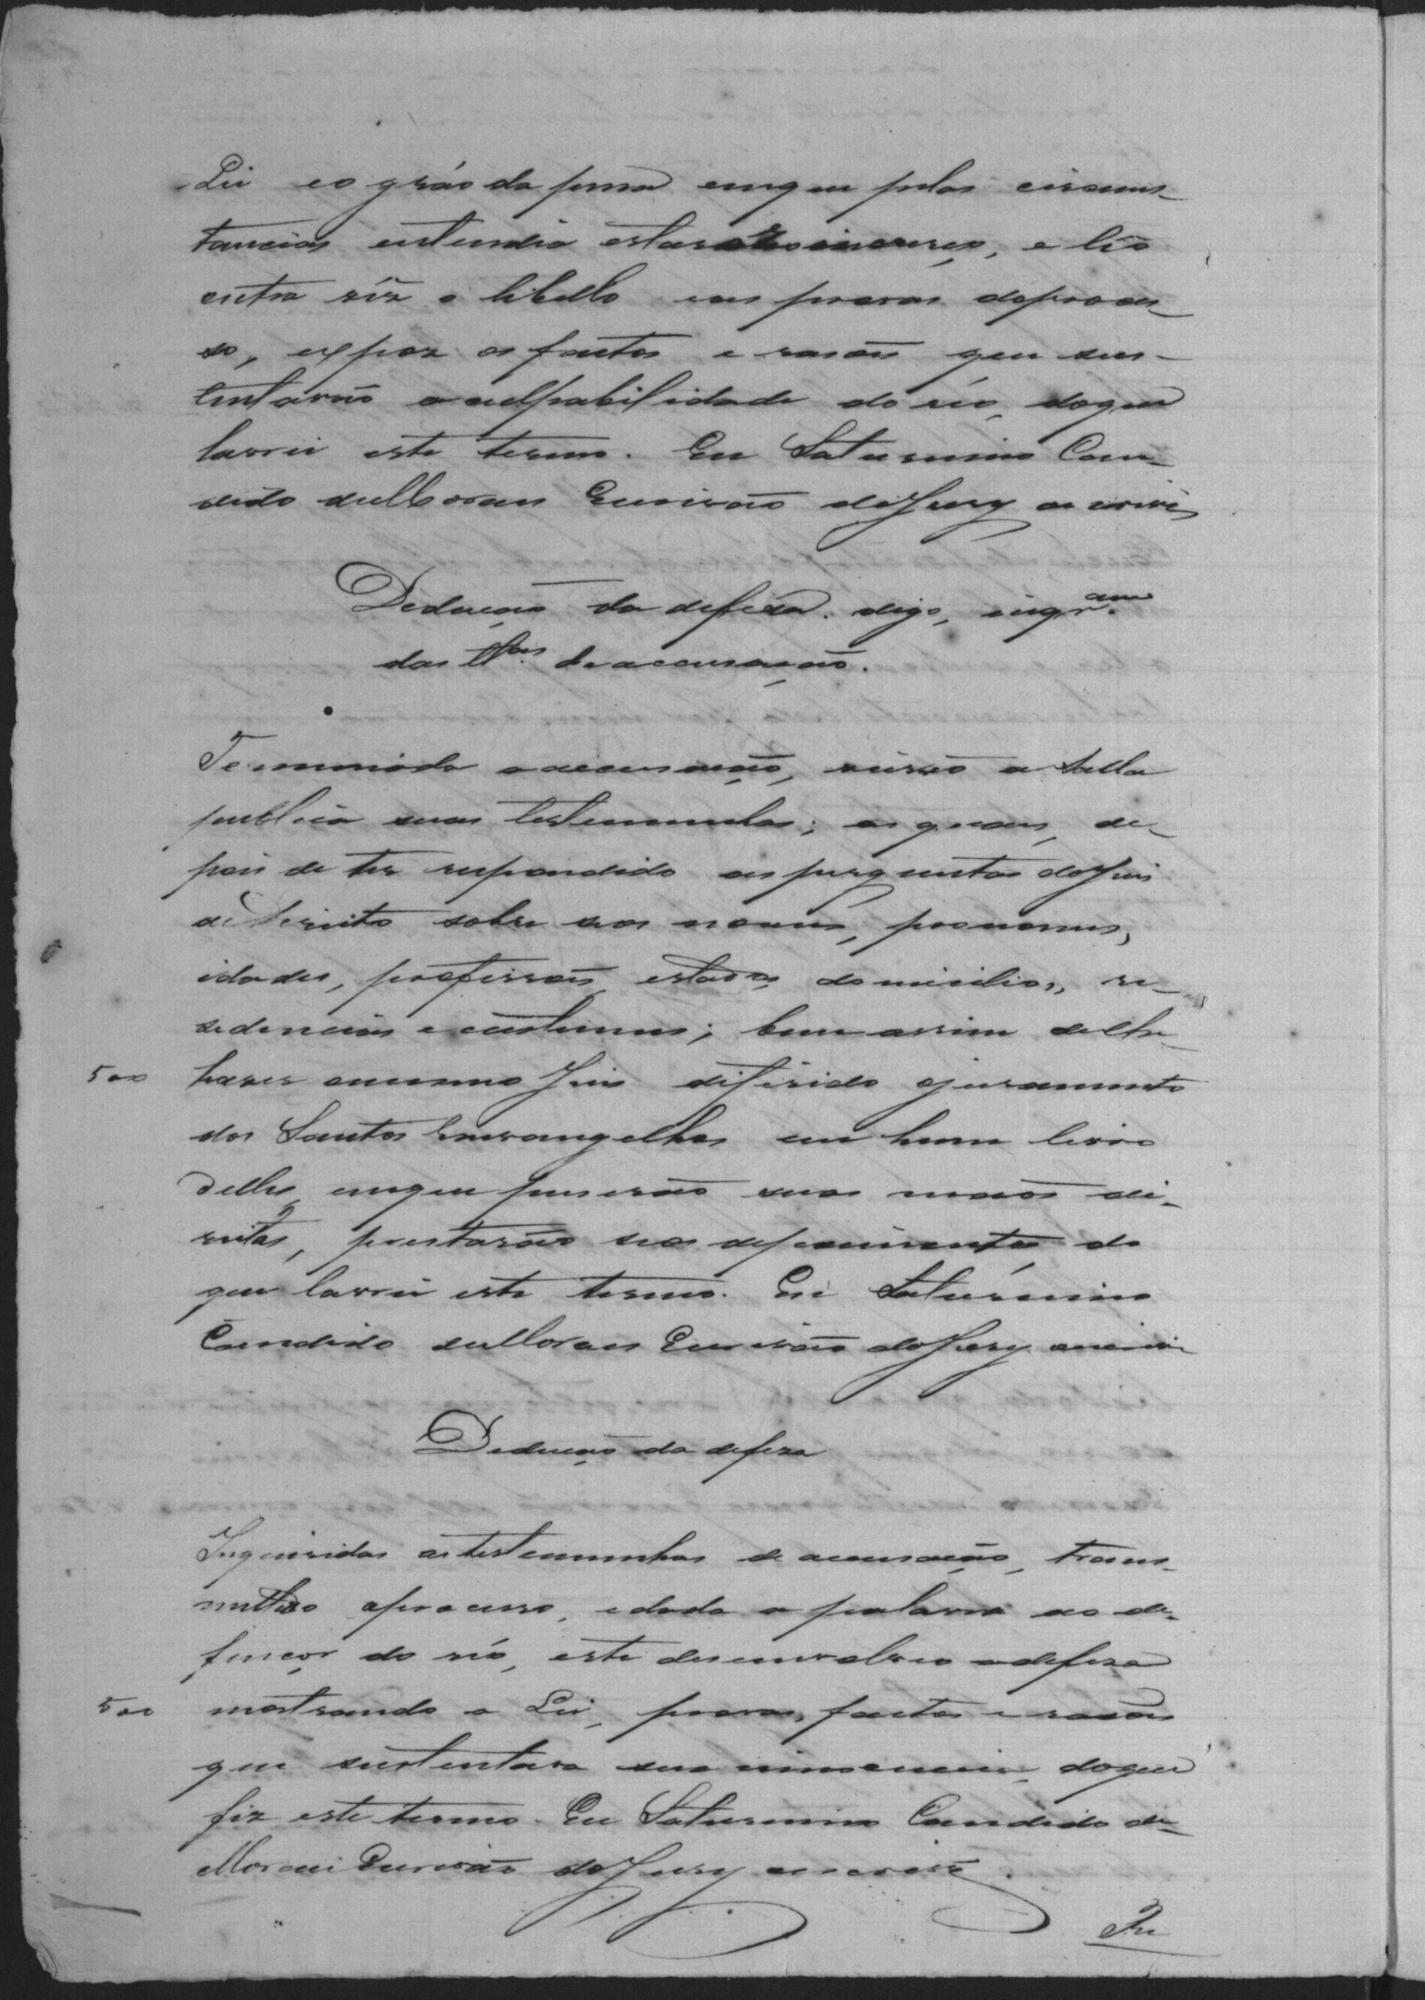 Lei e o gráo da pena em que pelas circuns-
tancias entendia estar o réo incurso, e lêo
outra vêz o libello e as provas do proces-
so, expoz os factos e rasões que sus-
tentavão a culpabilidade do réo, do que
lavrei este termo. Eu Saturnino Can-
dido de Moraes Escrivão do Jury o escrevi
Deducção da defeza. digo, inqr.am
das tt.as de accusação.
Terminada a accusação, vierão a salla
publica suas testemunhas; as quaes, de-
pois de ter respondido as perguntas do Juis
de Direito sobre seos nomes, pronomes,
idades, profissões, estados, domicilios, re-
sidencias e custumes; bem assim de lhe
500 haver o mesmo Juis diferido o juramento
dos Santos Envangelhos em hum livro
delles em que puserão suas mãos di-
reitas, prestarão seos depoimentos do
que lavrei este termo. Eu Saturnino
Candido de Moraes Escrivão do Jury o escrevi
Deducção da defeza
Inqueridas as testemunhas de accusação,
o processo, e dada a palavra ao de-
fençor do réo, este desenvolveo a defeza
500 mostrando a Lei, provas, factos e rasões
que sustentava sua innocencia, do que
fiz este termo. Eu Saturnino Candido de
Moraes Escrivão do Jury o escrevi.